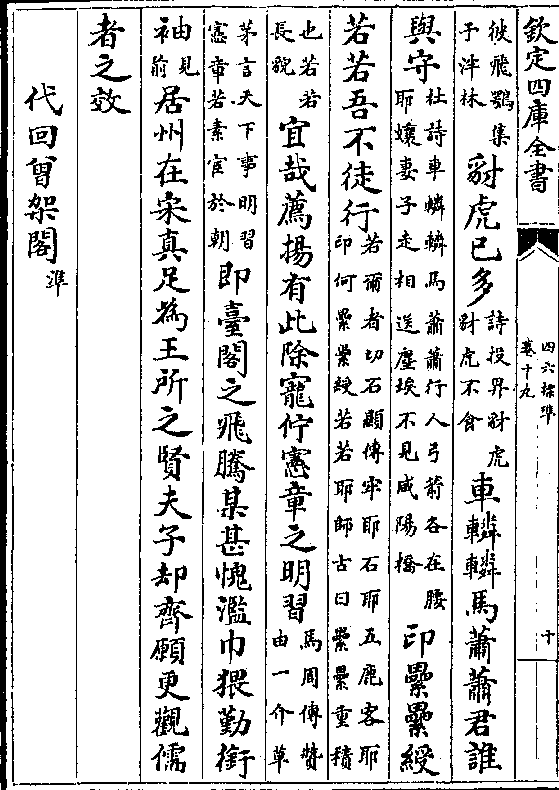 欽定四庫全書
四六標準
卷十九
十
彼飛鴞集
于泮林
豺虎已多
詩投畀豺虎
豺虎不食
車轔轔馬蕭蕭君誰
與守
杜詩車轔轔馬蕭蕭行人弓箭各在腰
耶孃妻子走相送塵埃不見咸陽橋
印纍纍綬
若若吾不徒行
若爾者切石顯傳牢耶石耶五鹿客耶
印何纍纍綬若若耶師古曰纍纍重積
也若若
長貌
宜哉薦揚有此除寵佇憲章之明習
馬周傳贊
由一介草
茅言天下事明習
憲章若素宦於朝
即臺閣之飛騰某甚愧濫巾猥勤銜
袖
見
前
居州在宋真足為王所之賢夫子却齊願更觀儒
者之效
代回曾架閣
準